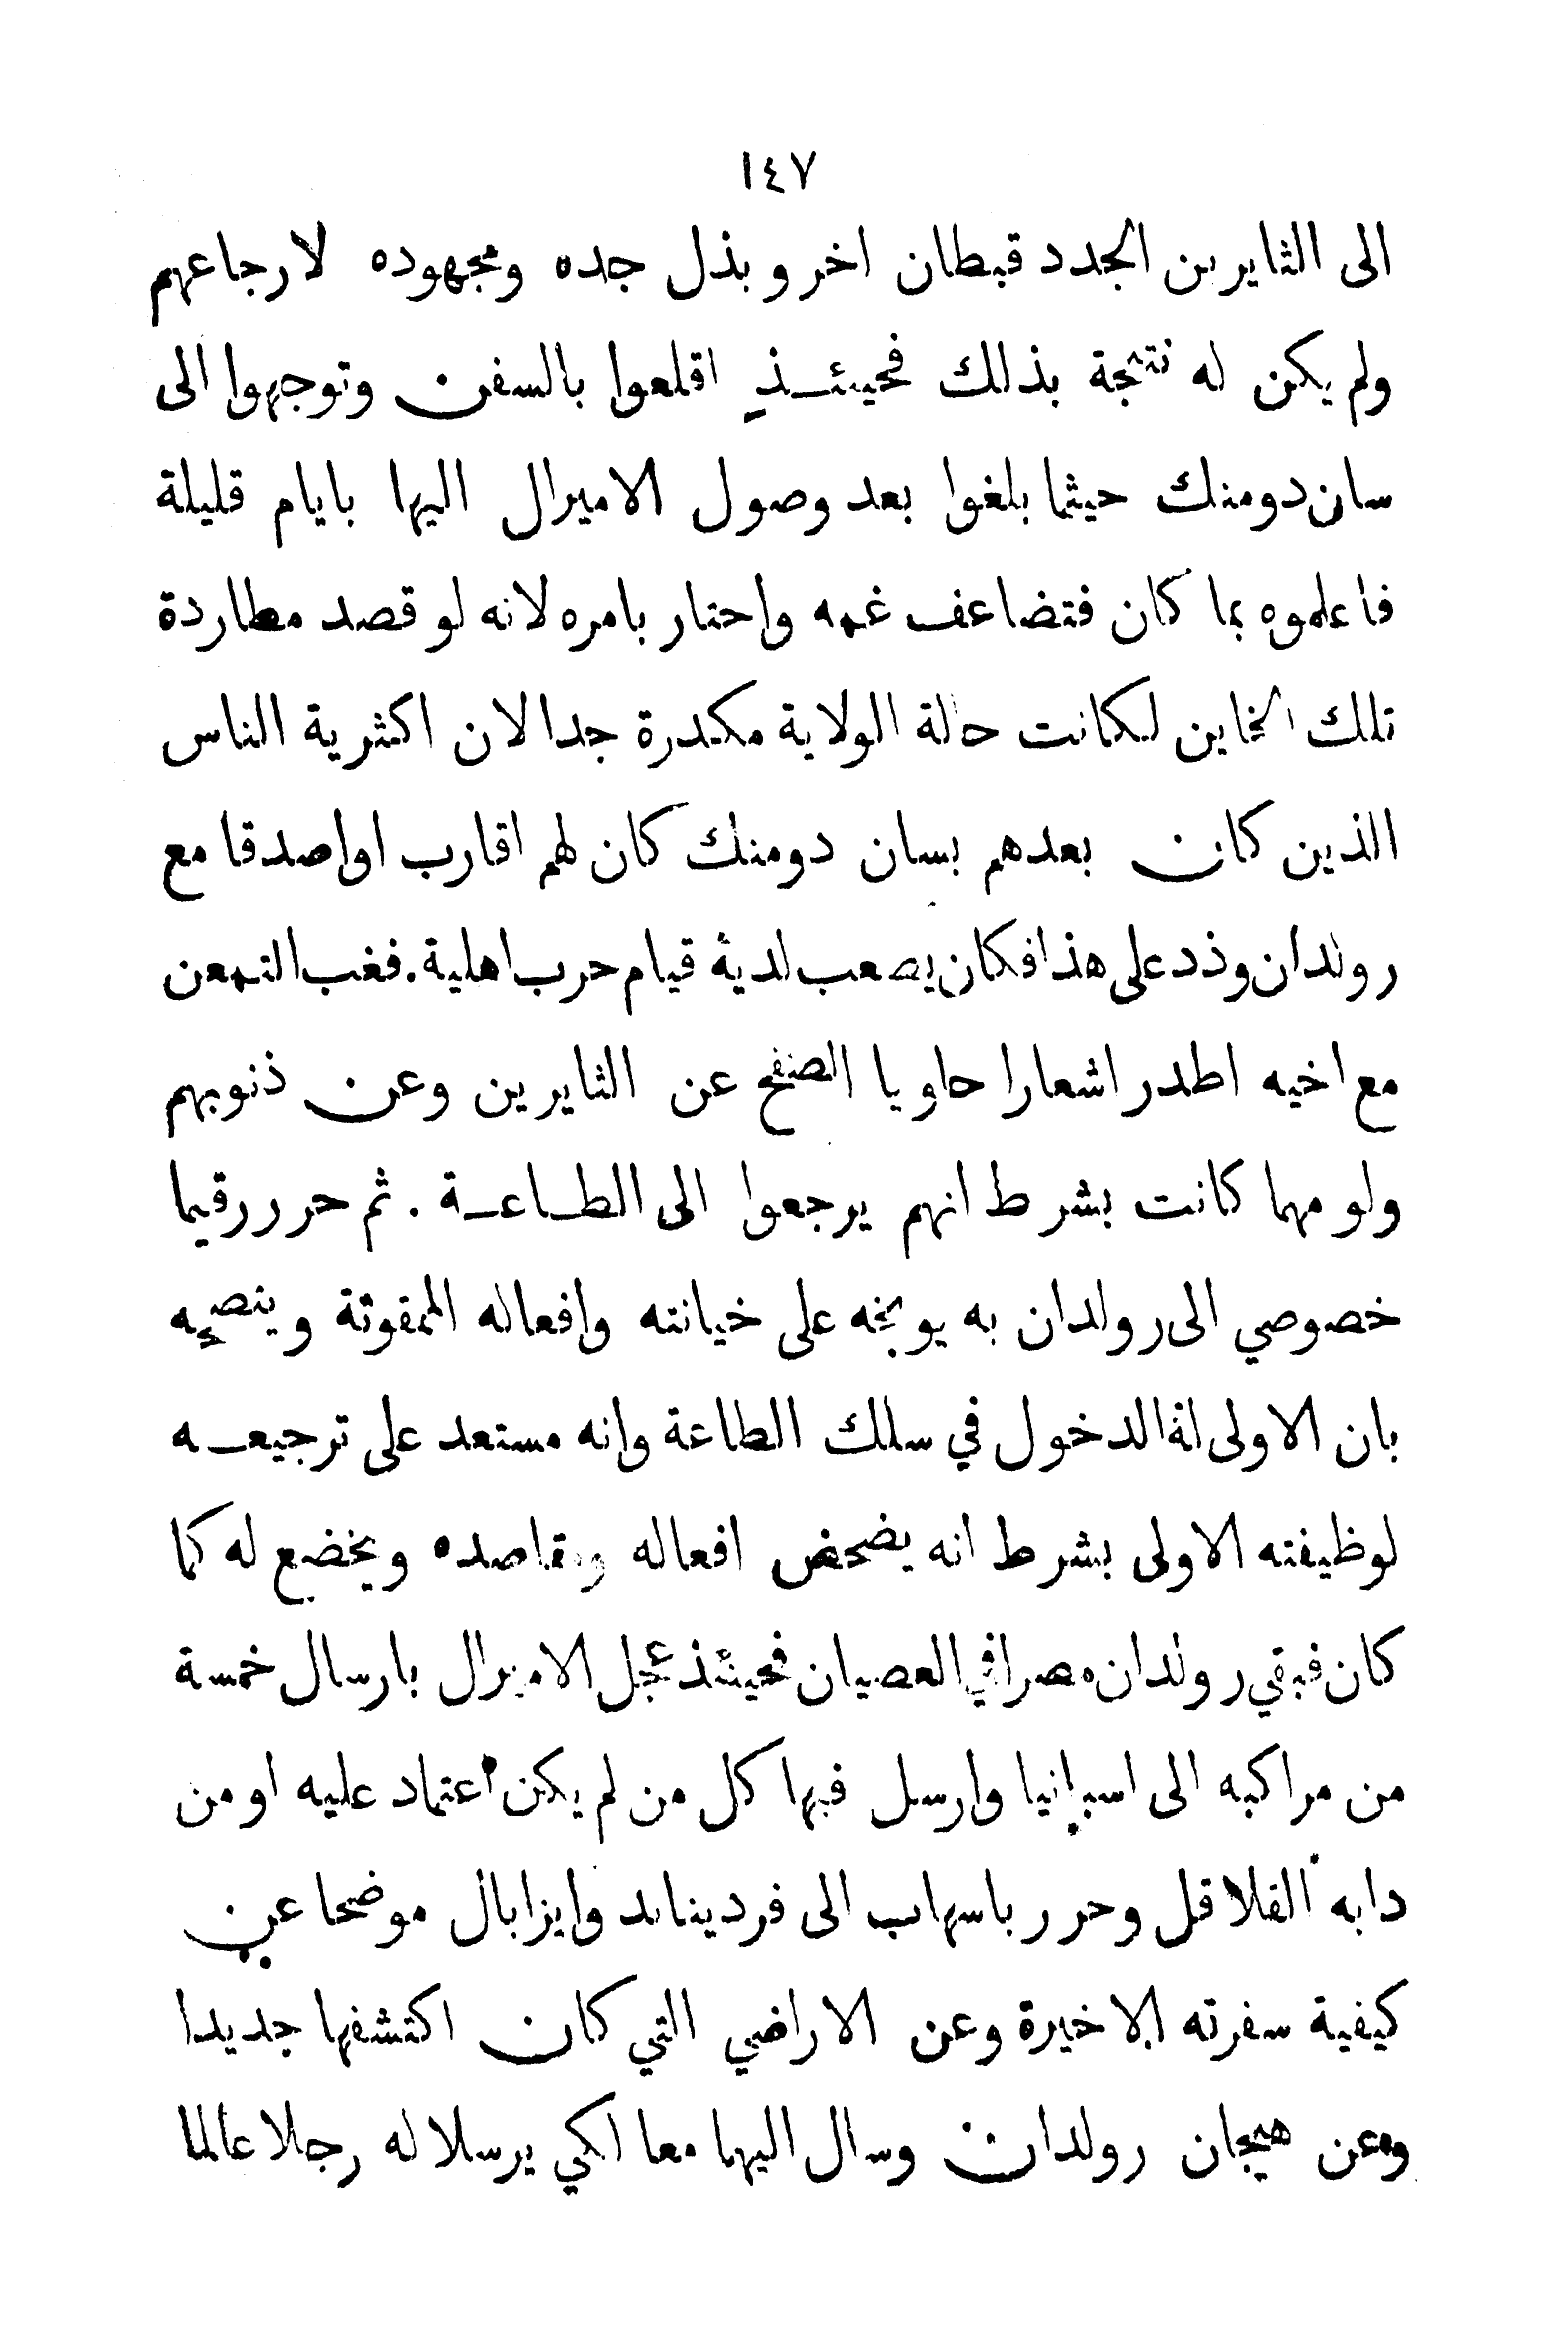 ١٤٧
الى الثايرين الجدد قبطان اخر وبذل جده ومجهوده لارجاعهم
ولم يكن له نتيجة بذلك فحينئــذٍ اقلعوا بالسفن وتوجهوا الى
سان دومنك حيثما بلغوا بعد وصول الاميرال اليها بايام قليلة
فاعلموه بما كان فتضاعف غمه واحتار بامره لانه لو قصد مطاردة
تلك الخاين لكانت حالة الولاية مكدرة جدا لان اكثرية الناس
الذين كان بعدهم بسان دومنك كان لهم اقارب او اصدقا مع
رولدان وذد على هذا فكان يصعب لدية قيام حرب اهلية. فغب التمعن
مع اخيه اطدر اشعارا حاويا الصنفح عن الثايرين وعن ذنوبهم
ولو مهما كانت بشرط انهم يرجعوا الى الطــاعــة . ثم حرر رقيما
خصوصي الى رولدان به يوبخه على خيانته وافعاله الممقوتة وينصحه
بان الاولى لة الدخول في سلك الطاعة وانه مستعد على ترجيعــه
لوظيفته الاولى بشرط انه يضحض افعاله ومقاصده ويخضع له كما
كان فبقي رولدان مصرا في العصيان فحينئذ عجل الاميرال بارسال خمسة
من مراكبه الى اسبانيا وارسل فيها كل من لم يكن اعتماد عليه او من
دابه القلاقل وحرر باسهاب الى فرديناند وايزابال موضحا عن
كيفية سفرته الاخيرة وعن الاراضي التي كان اكتشفها جديدا
وعن هيجان رولدان وسال اليهما معا لكي يرسلا له رجلا عالما